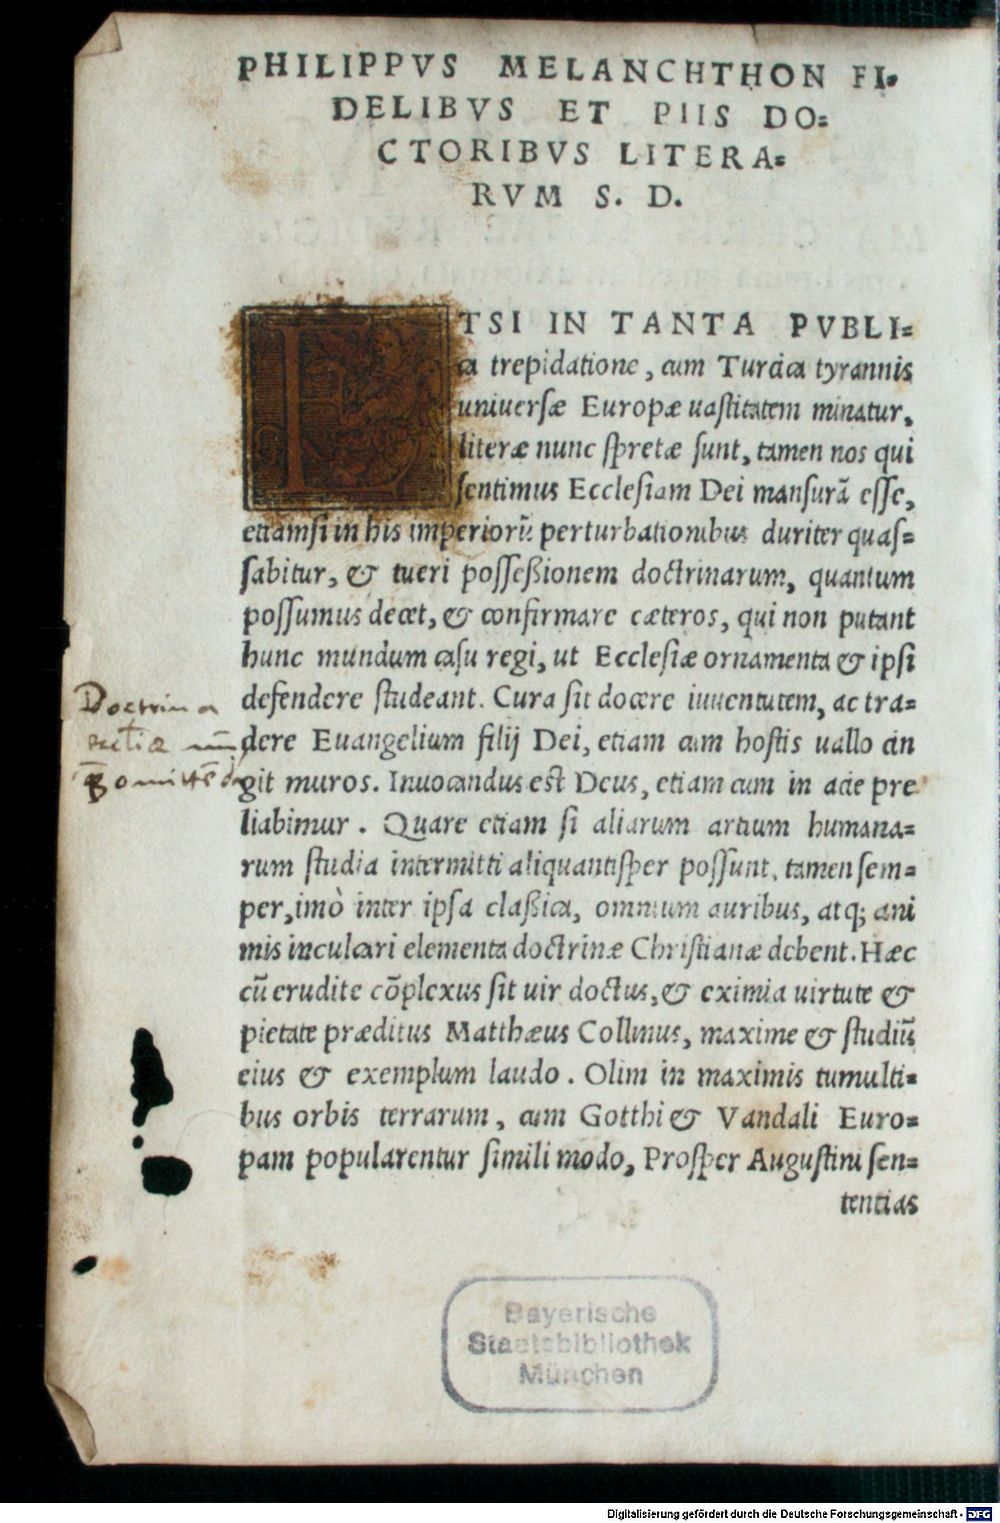 PHILIPPVS MELANCHTHON FI-
DELIBVS ET PIIS DO=
CTORIBVS LITERA=
RVM S. D.
ETSI IN TANTA PVBLI=
ca trepidatione, cum Turcica tyrannis
uniuersæ Europæ uastitatem minatur,
literæ nunc spretæ sunt, tamen nos qui
sentimus Ecclesiam Dei mansurã esse,
etiamsi in his imperiorũ perturbationibus duriter quas=
sabitur, & tueri possessionem doctrinarum, quantum
possumus decet, & confirmare cæteros, qui non putant
hunc mundum casu regi, ut Ecclesiæ ornamenta & ipsi
defendere studeant. Cura sit docere iuuentutem, ac tra=
dere Euangelium filij Dei, etiam cum hostis uallo cin
git muros. Inuocandus est Deus, etiam cum in acie pre
liabimur. Quare etiam si aliarum artium humana=
rum studia intermitti aliquantisper possunt, tamen sem=
per, imò inter ipsa classica, omnium auribus, atq; ani
mis inculcari elementa doctrinæ Christianæ debent. Hæc
cũ erudite cõplexus sit uir doctus, & eximia uirtute &
pietate præditus Matthæus Collinus, maxime & studiũ
eius & exemplum laudo. Olim in maximis tumulti=
bus orbis terrarum, cum Gotthi & Vandali Euro=
pam popularentur simili modo, Prosper Augustini sen=
tentias
Doctrina
Bayerische
Staatsbibliothek
München
Digitalisierung gefördert durch die Deutsche Forschungsgemeinschaft - DFG